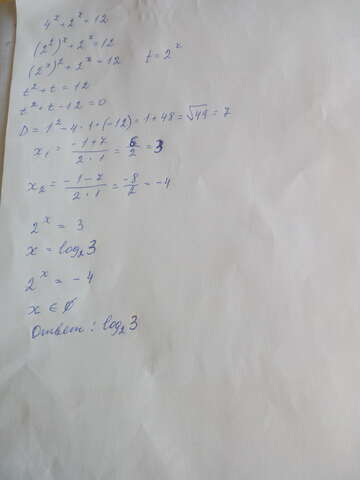 4^x + 2^x = 12
(2^2)^x + 2^x = 12
(2^x)^2 + 2^x = 12 t = 2^x
t^2 + t = 12
t^2 + t - 12 = 0
D = 1^2 - 4 · 1 · (-12) = 1 + 48 = √49 = 7
x₁ = (-1+7)/(2·1) = 6/2 = 3
x₂ = (-1-7)/(2·1) = -8/2 = -4
2^x = 3
x = log₂3
2^x = -4
x ∈ ∅
Ответ: log₂3